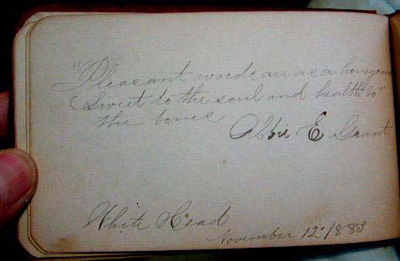 "Pleasant words are as a honeycomb
Sweet to the soul and health to"
the bones
Abbie E Grant
White Head
November 12 1883